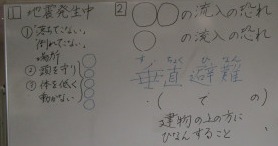 1 地震発生中
①「落ちてこない」
「倒れてこない」
場所
②頭を守り
③体を低く
動かない
2 ○○の流入の恐れ
○の流入の恐れ
垂直避難
・( での )
建物の上の方に
ひなんすること